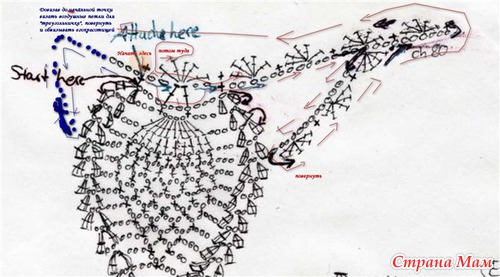 Довязав до начальной точки
вязать воздушные петли для
"треугольничка", повернуть
и обвязывать вокруг сеткой
Attach here
Начать здесь
потом туда
Start here
ch 80
повернуть
Страна Мам